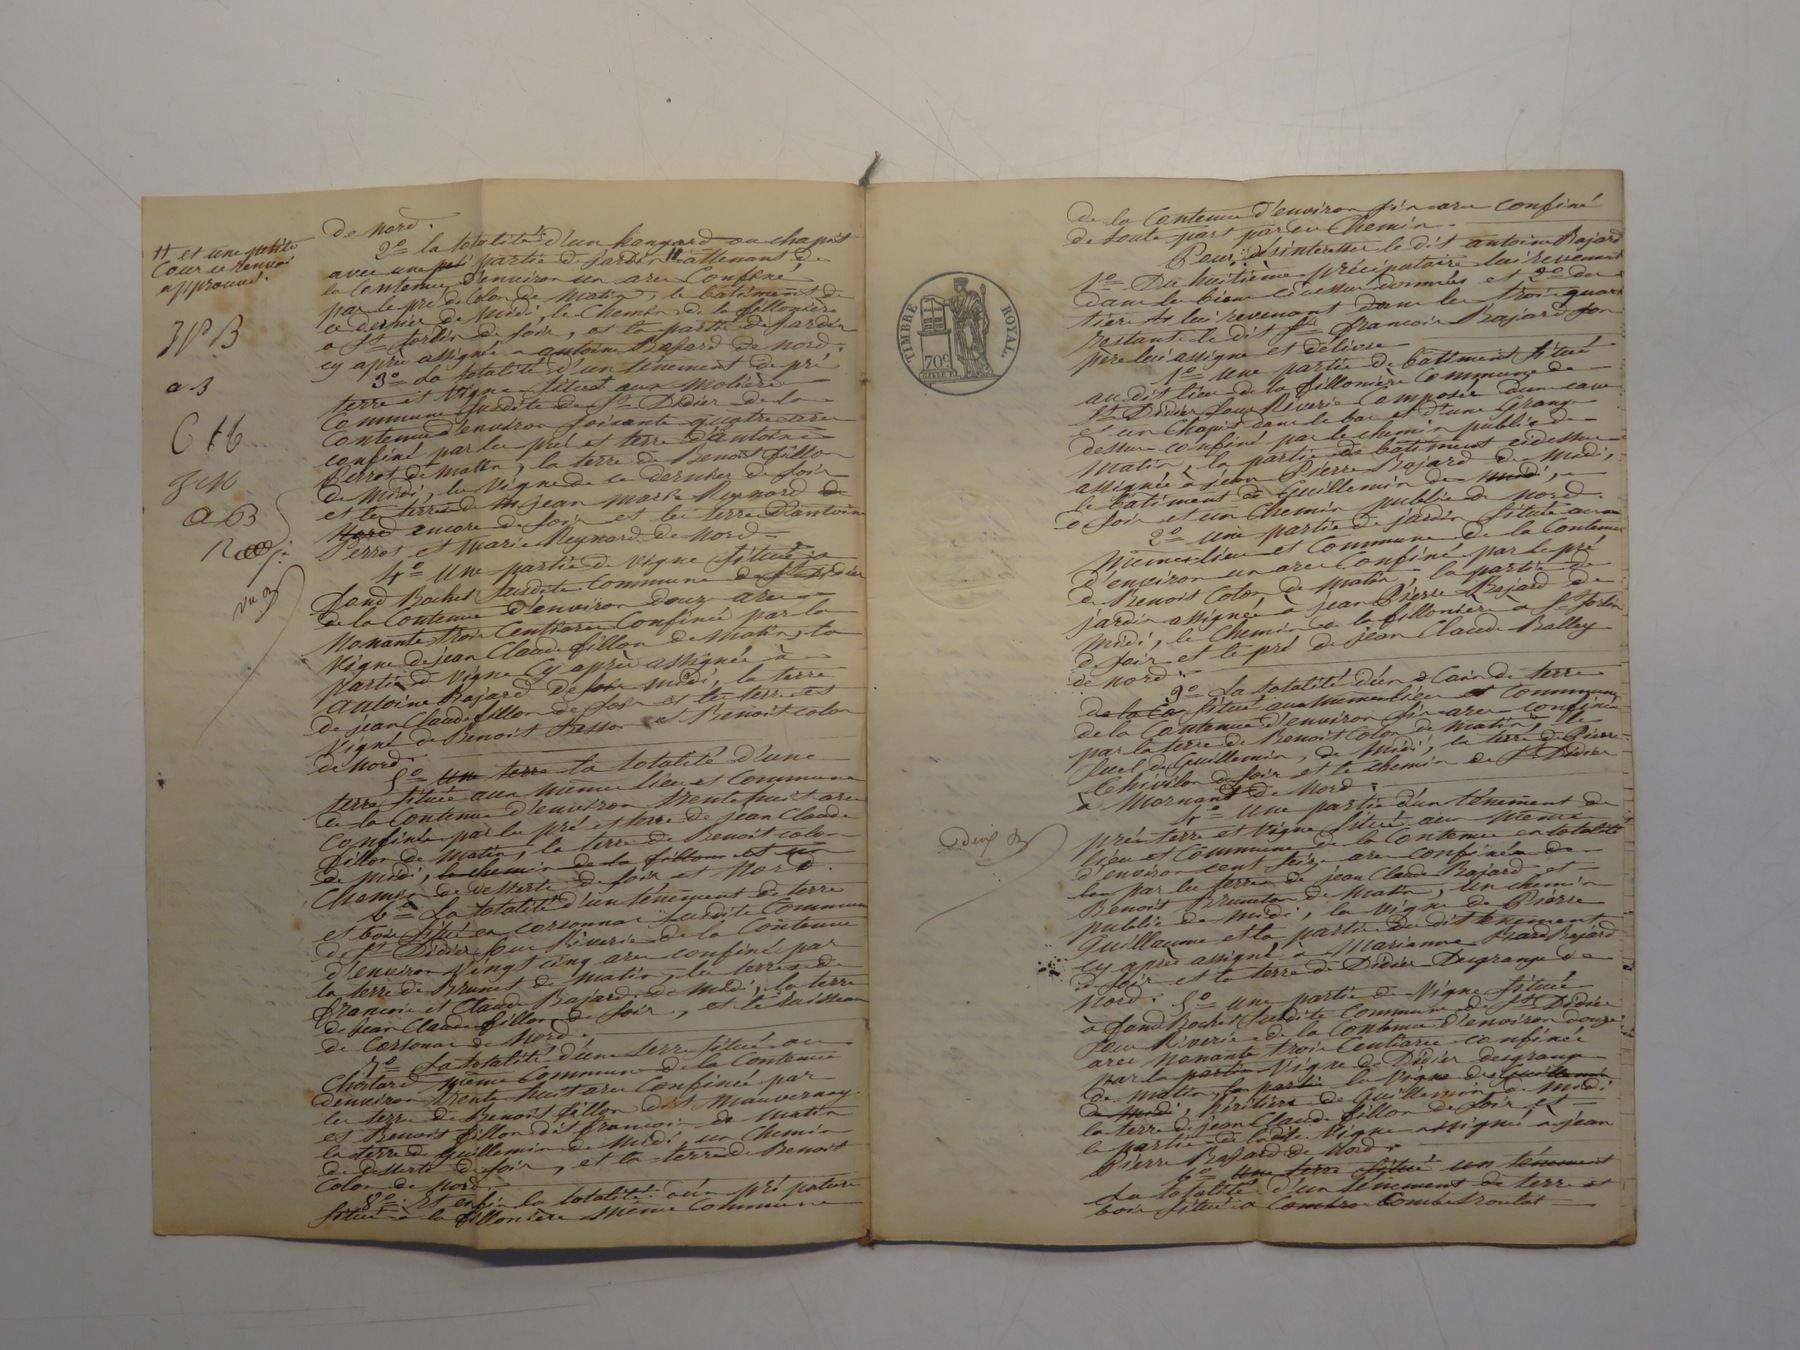 # et une petite
Cour ce renvoi
approuvé.
JPB
a B
C H
JM
a B
de nord.
2° la totalité d'un hangard ou chapit
avec une partie de jardin # attenant de
la Contenue d'environ un are Confiné
par le pré de Colon de Matin, le bâtiment de
ce dernier de Midi, le Chemin de la fillonière
a St. forlin de soir, et la partie de Jardin
cy après assigné a antoine Bajard de Nord.
3° La totalité d'un tènement de pré
terre et Vigne situé aux Molière
Commune susdite de St. Didier de la
Contenue d'environ soixante quatre are
confiné par les pré et terre d'antoine
Perrot de Matin, la terre de Benoit fillon
de Midi, la Vigne de ce dernier de soir
et les terres de jean Marie Reynard de
Nord encore de soir et les terre d'antoine
Perrot et Marie Reynard de Nord
4° Une partie de Vigne située a
fond Rochet susdite Commune de St Didier
de la Contenue d'environ douze are
Nonante trois Centiares Confinée par la
Vigne de jean Claude fillon de Matin, la
partie de Vigne cy après assignée à
antoine Bajard de Midi, la terre
de jean Claude fillon de soir et les terre et
Vigne de Benoit Besson et Benoit Colon
de Nord.
5° Une terre la totalité d'une
terre située aux mêmes lieu et Commune
de la Contenue d'environ trente huit are
Confinée par les pré et terre de jean Claude
fillon de Matin, la terre de Benoit Colon
de Midi, le chemin de la fillon et un
Chemin de desserte de soir et Nord.
6° La totalité d'un tènement de terre
et bois situé en Corsonnas susdite Commune
de St. Didier sous Riverie de la Contenue
d'environ Vingt cinq are confiné par
la terre de Brunet de Matin, les terres de
françois et Claude Bajard de Midi, la terre
de jean Claude fillon de soir, et le ruisseau
de Corsonas de Nord.
7° La totalité d'une terre située au
même Commune de la Contenue
d'environ trente huit are Confinée par
les terre de Benoit fillon dit Mauvernay
et Benoit fillon dit françois de Matin
la terre de Guillemin de Midi un Chemin
de desserte de soir, et la terre de Benoit
Colon de Nord.
8° Et enfin la totalité d'un pré pature
situé à la fillonière même Commune
TIMBRE ROYAL
70c
de la Contenue d'environ six are confiné
de toute part par un Chemin.
Pour désintéresser le dit antoine Bajard
1° Du huitième préciputaire lui revenant
dans les biens cidessus donnés et 2° du
tière lui revenant dans les trois quart
restants le dit françois Bajard son
père lui assigne et délivre
1° Une partie de bâtiment situé
au dit lieu de la fillonière Commune de
St. Didier sous Riverie Composée d'une cave
et un Chapit dans le bas et d'une Grange
dessus confiné par le chemin public de
Matin, la partie de bâtiment cidessus
assignée à jean Pierre Bajard de Midi,
le bâtiment de Guillemin de
soir et un Chemin public de Nord.
2° une partie de jardin située aux
mêmes lieu et Commune de la Contenue
d'environ un are Confiné par le pré
de Benoit Colon de Matin, la partie de
jardin assignée à jean Pierre Bajard de
Midi, le Chemin de la fillonière à St. forlin
de soir et le pré de jean Claude Balley
de Nord.
3° La totalité d'un Coin de terre
situé aux mêmes lieu et Commune
de la Contenue d'environ six are confiné
par la terre de Benoit Colon de Matin, le
de Guillemin, de Midi, la terre de Pierre
Chivilon de soir et le chemin de St. Didier
a Mornant de Nord.
4° Une partie d'un tènement de
pré, terre et Vigne située aux même
lieu et Commune de la Contenue en totalité
d'environ cent seize are confinée
par les terres de jean Claude Bajard et
Benoit Bruneton de Matin, un chemin
public de Midi, la Vigne de Pierre
Guillaume et la partie du dit tènement
cy après assigné à Marianne Bajard
de soir et la terre de Didier Desgrange de
Nord. 5° une partie de Vigne située
à fond Rochet susdite Commune de St Didier
sous Riverie de la Contenue d'environ douze
ares Nonante trois Centiares confinée
par la partie Vigne de Didier desgrange
de Matin, la partie la Vigne de Guillemin
de Midi, héritière de Guillemin de Midi
la terre de jean Claude fillon de soir et
la partie de ladite Vigne assignée à jean
Pierre Bajard de Nord.
6° Une terre située un tènement
La totalité d'un tènement de terre et
bois situé a Combe